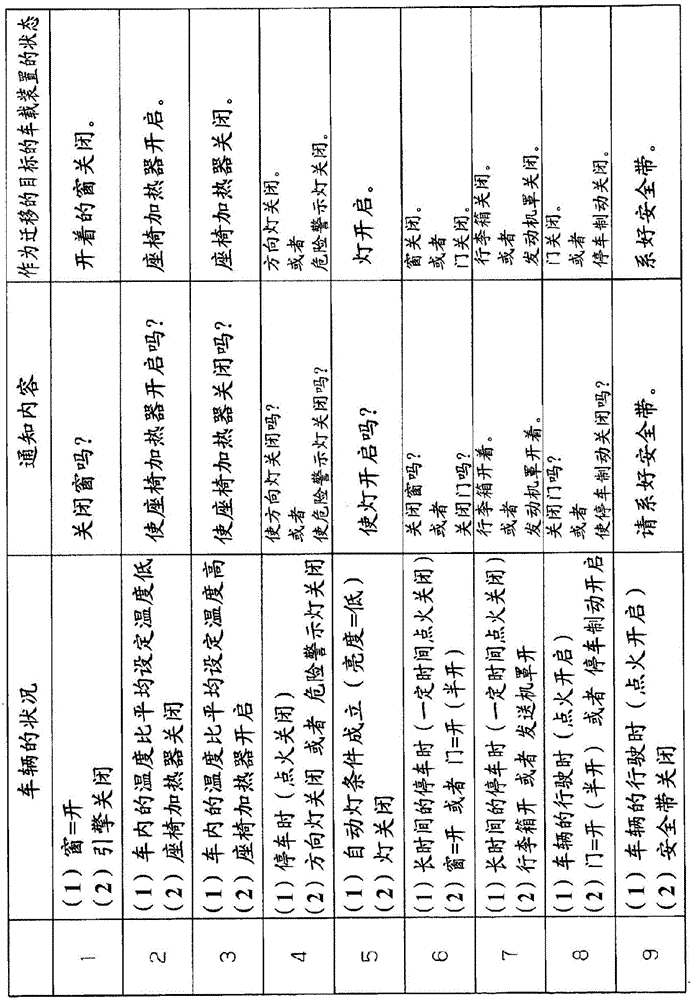 车辆的状况
通知内容
作为迁移的目标的车载装置的状态
1
(1)窗=开
(2)引擎关闭
关闭窗吗?
开着的窗关闭。
2
(1)车内的温度比平均设定温度低
(2)座椅加热器关闭
使座椅加热器开启吗?
座椅加热器开启。
3
(1)车内的温度比平均设定温度高
(2)座椅加热器开启
使座椅加热器关闭吗?
座椅加热器关闭。
4
(1)停车时(点火关闭)
(2)方向灯关闭 或者 危险警示灯关闭
使方向灯关闭吗?
或者
使危险警示灯关闭吗?
方向灯关闭。
或者
危险警示灯关闭。
5
(1)自动灯条件成立(亮度=低)
(2)灯关闭
使灯开启吗?
灯开启。
6
(1)长时间的停车时(一定时间点火关闭)
(2)窗=开 或者 门=开(半开)
关闭窗吗?
或者
关闭门吗?
窗关闭。
或者
门关闭。
7
(1)长时间的停车时(一定时间点火关闭)
(2)行李箱开 或者 发送机罩开
行李箱开着。
或者
发动机罩开着。
行李箱关闭。
或者
发动机罩关闭。
8
(1)车辆的行驶时(点火开启)
(2)门=开(半开) 或者 停车制动开启
关闭门吗?
或者
使停车制动关闭吗?
门关闭。
或者
停车制动关闭。
9
(1)车辆的行驶时(点火开启)
(2)安全带关闭
请系好安全带。
系好安全带。